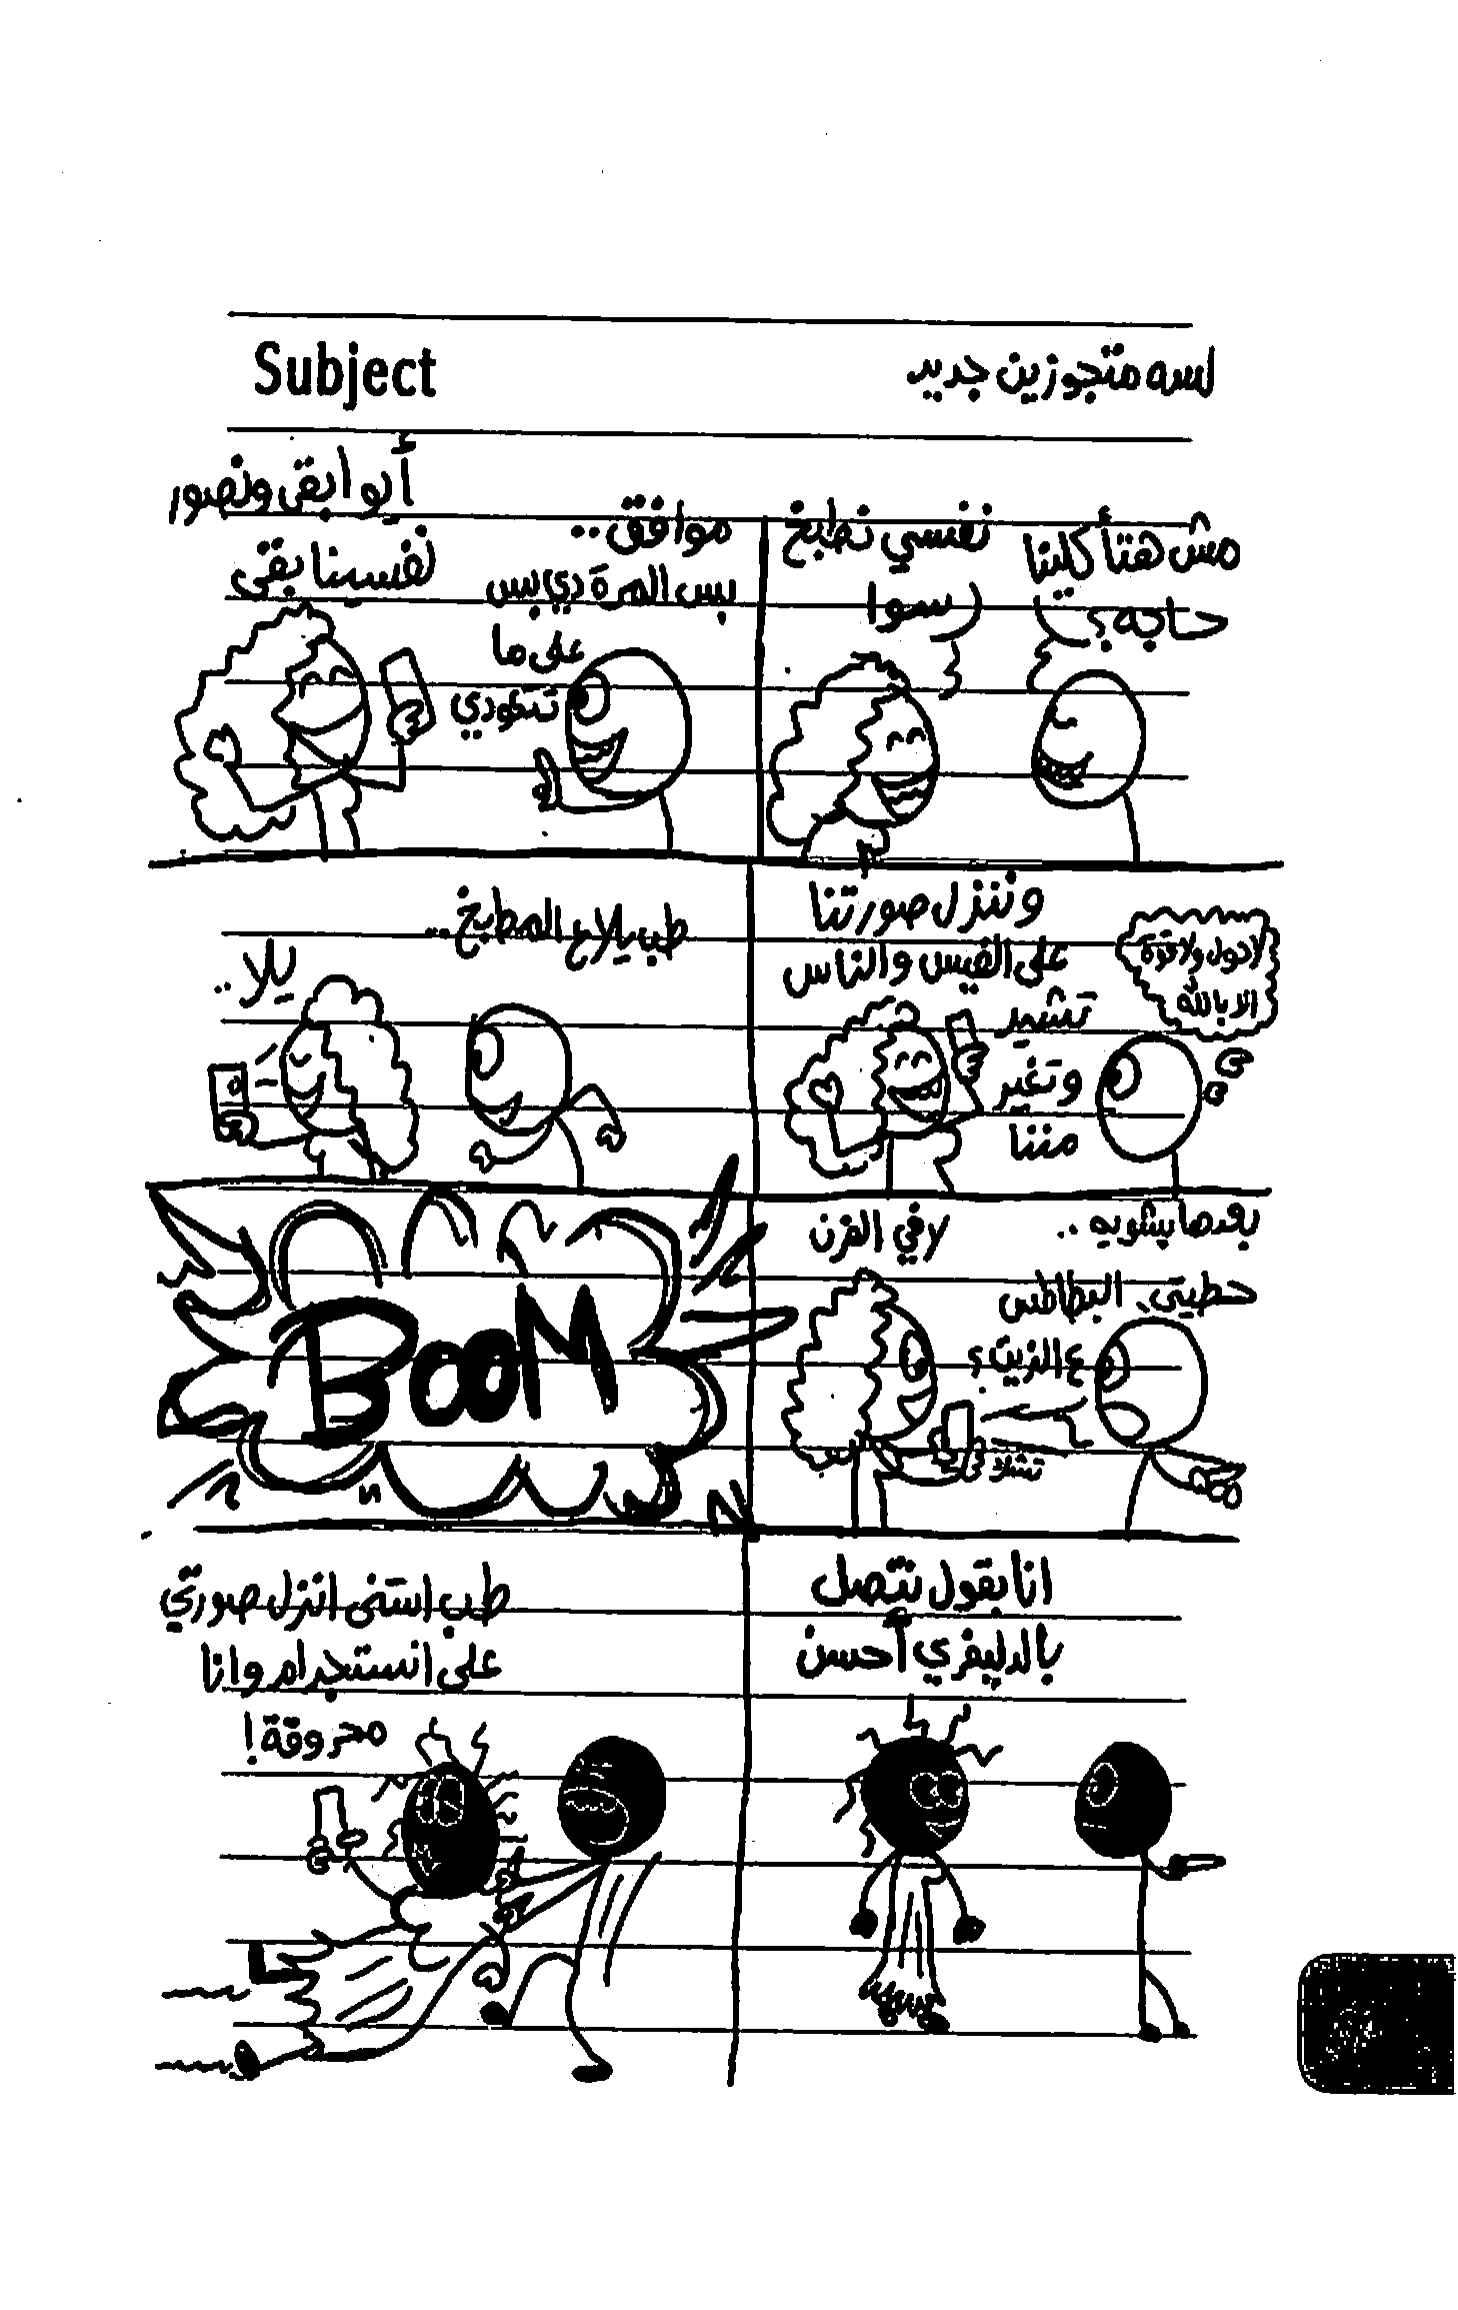 Subject
لسه متجوزين جديد
مش هتأكلينا
حاجه؟
نفسي نطبخ
سوا
موافق..
بس المرة دي بس
على ما
تتعودي
أيوا بقى ونصور
نفسينا بقى
لا حول ولا قوة
الا بالله
وننزل صورتنا
على الفيس والناس
تشير
وتغير
مننا
طب يلا ع المطبخ..
يلا..
بعدها بشويه..
حطيتي البطاطس
ع الزيت؟
لا في الفرن
تشك
BOOM
انا بقول نتصل
بالدليفري أحسن
طب استنى انزل صورتي
على انستجرام وانا
محروقة!